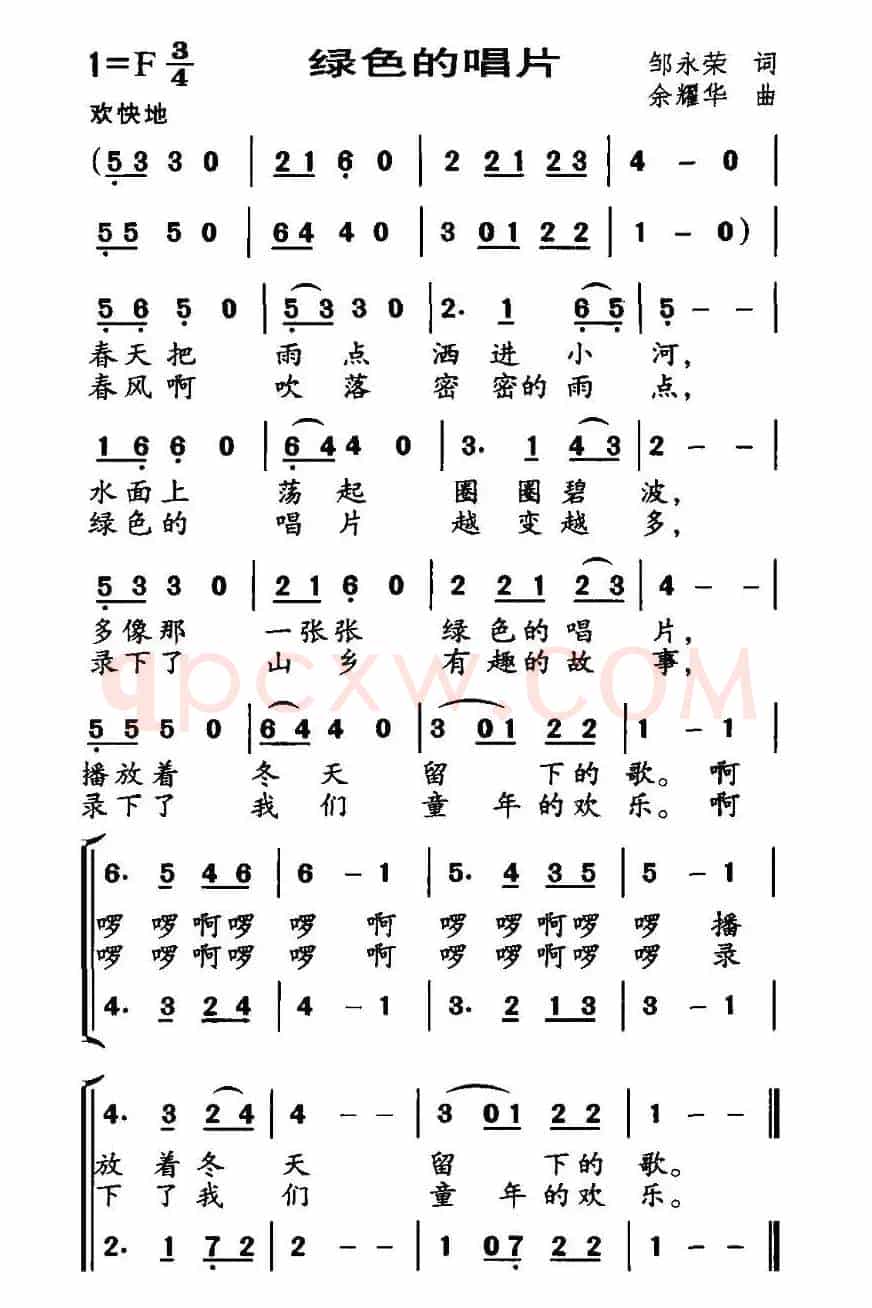 1=F 3/4 绿色的唱片 邹永荣 词
欢快地 余耀华 曲
(5 3 3 0 | 2 1 6 0 | 2 2 1 2 3 | 4 - 0 |
5 5 5 0 | 6 4 4 0 | 3 0 1 2 2 | 1 - 0) |
5 6 5 0 | 5 3 3 0 | 2. 1 6 5 | 5 - - |
春天把 雨点 洒进小河,
春风啊 吹落 密密的雨点,
1 6 6 0 | 6 4 4 0 | 3. 1 4 3 | 2 - - |
水面上 荡起 圈圈碧波,
绿色的 唱片 越变越多,
5 3 3 0 | 2 1 6 0 | 2 2 1 2 3 | 4 - - |
多像那 一张张 绿色的唱片,
录下了 山乡 有趣的故事,
5 5 5 0 | 6 4 4 0 | 3 0 1 2 2 | 1 - 1 |
播放着 冬天 留下的歌。啊
录下了 我们 童年的欢乐。啊
6. 5 4 6 | 6 - 1 | 5. 4 3 5 | 5 - 1 |
啰啰啊啰 啰啊 啰啰啊啰 啰播
啰啰啊啰 啰啊 啰啰啊啰 啰录
4. 3 2 4 | 4 - 1 | 3. 2 1 3 | 3 - 1 |
4. 3 2 4 | 4 - - | 3 0 1 2 2 | 1 - - ‖
放着冬天 留下的歌。
下了我们 童年的欢乐。
2. 1 7 2 | 2 - - | 1 0 7 2 2 | 1 - - ‖
qpcxw.COM